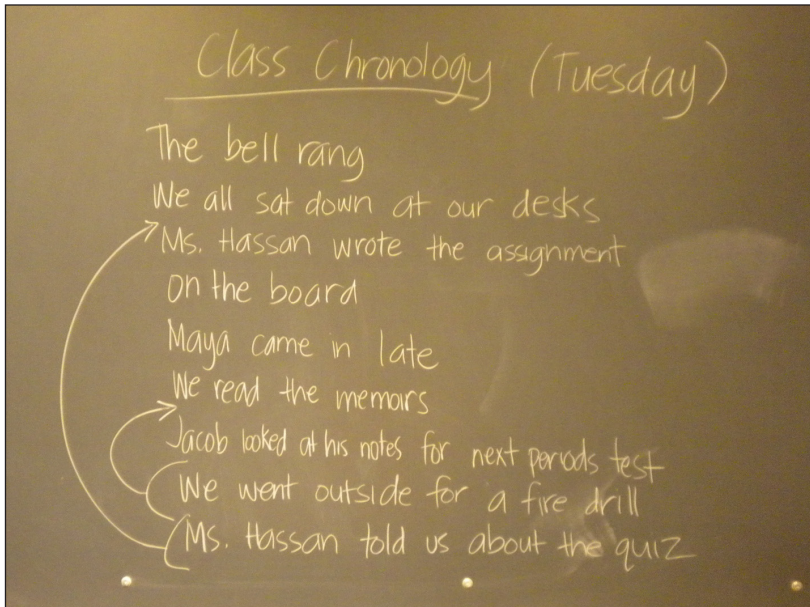 Class Chronology (Tuesday)
The bell rang
We all sat down at our desks
Ms. Hassan wrote the assignment
on the board
Maya came in late
We read the memoirs
Jacob looked at his notes for next periods test
We went outside for a fire drill
Ms. Hassan told us about the quiz